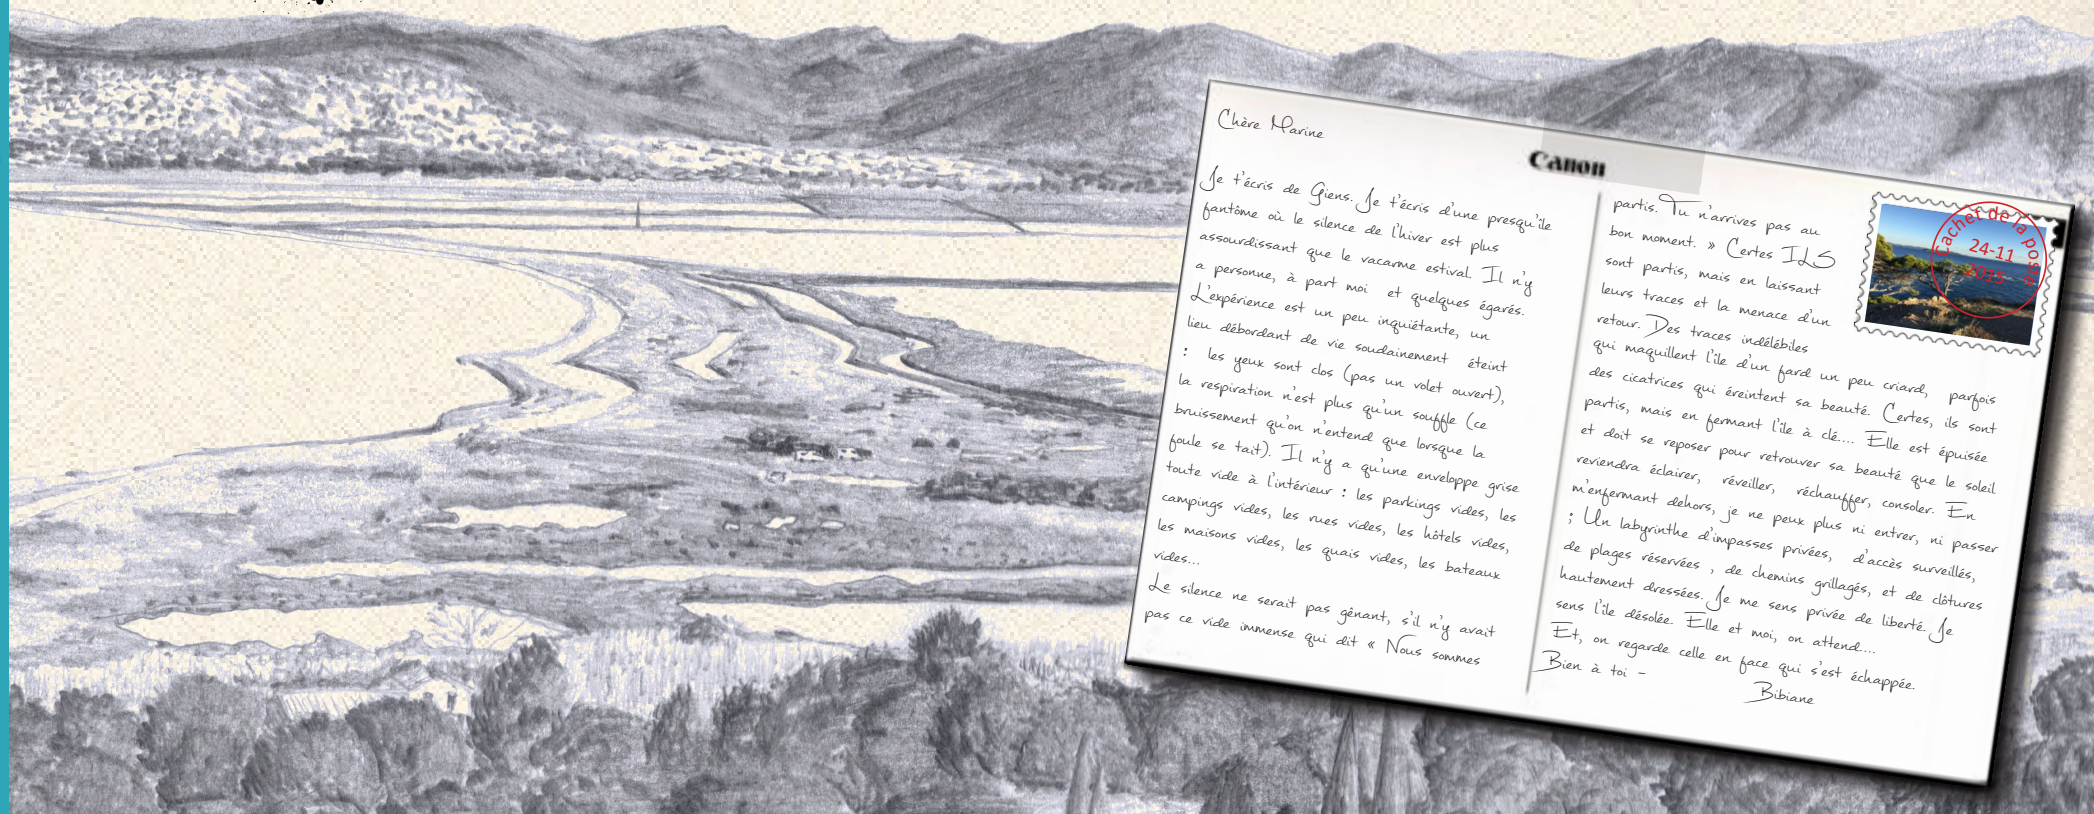 Chère Marine
Canon
Je t'écris de Giens. Je t'écris d'une presqu'île
fantôme où le silence de l'hiver est plus
assourdissant que le vacarme estival. Il n'y
a personne, à part moi et quelques égarés.
L'expérience est un peu inquiétante, un
lieu débordant de vie soudainement éteint
: les yeux sont clos (pas un volet ouvert),
la respiration n'est plus qu'un souffle (ce
bruissement qu'on n'entend que lorsque la
foule se tait). Il n'y a qu'une enveloppe grise
toute vide à l'intérieur : les parkings vides, les
campings vides, les rues vides, les hôtels vides,
les maisons vides, les quais vides, les bateaux
vides...
Le silence ne serait pas gênant, s'il n'y avait
pas ce vide immense qui dit « Nous sommes
partis. Tu n'arrives pas au
bon moment. » Certes ILS
sont partis, mais en laissant
leurs traces et la menace d'un
retour. Des traces indélébiles
qui maquillent l'île d'un fard un peu criard, parfois
des cicatrices qui éreintent sa beauté. Certes, ils sont
partis, mais en fermant l'île à clé.... Elle est épuisée
et doit se reposer pour retrouver sa beauté que le soleil
reviendra éclairer, réveiller, réchauffer, consoler. En
m'enfermant dehors, je ne peux plus ni entrer, ni passer
; Un labyrinthe d'impasses privées, d'accès surveillés,
de plages réservées , de chemins grillagés, et de clôtures
hautement dressées. Je me sens privée de liberté. Je
sens l'île désolée. Elle et moi, on attend....
Et, on regarde celle en face qui s'est échappée.
Bien à toi -
Bibiane
Cachet de la poste
24-11
2015